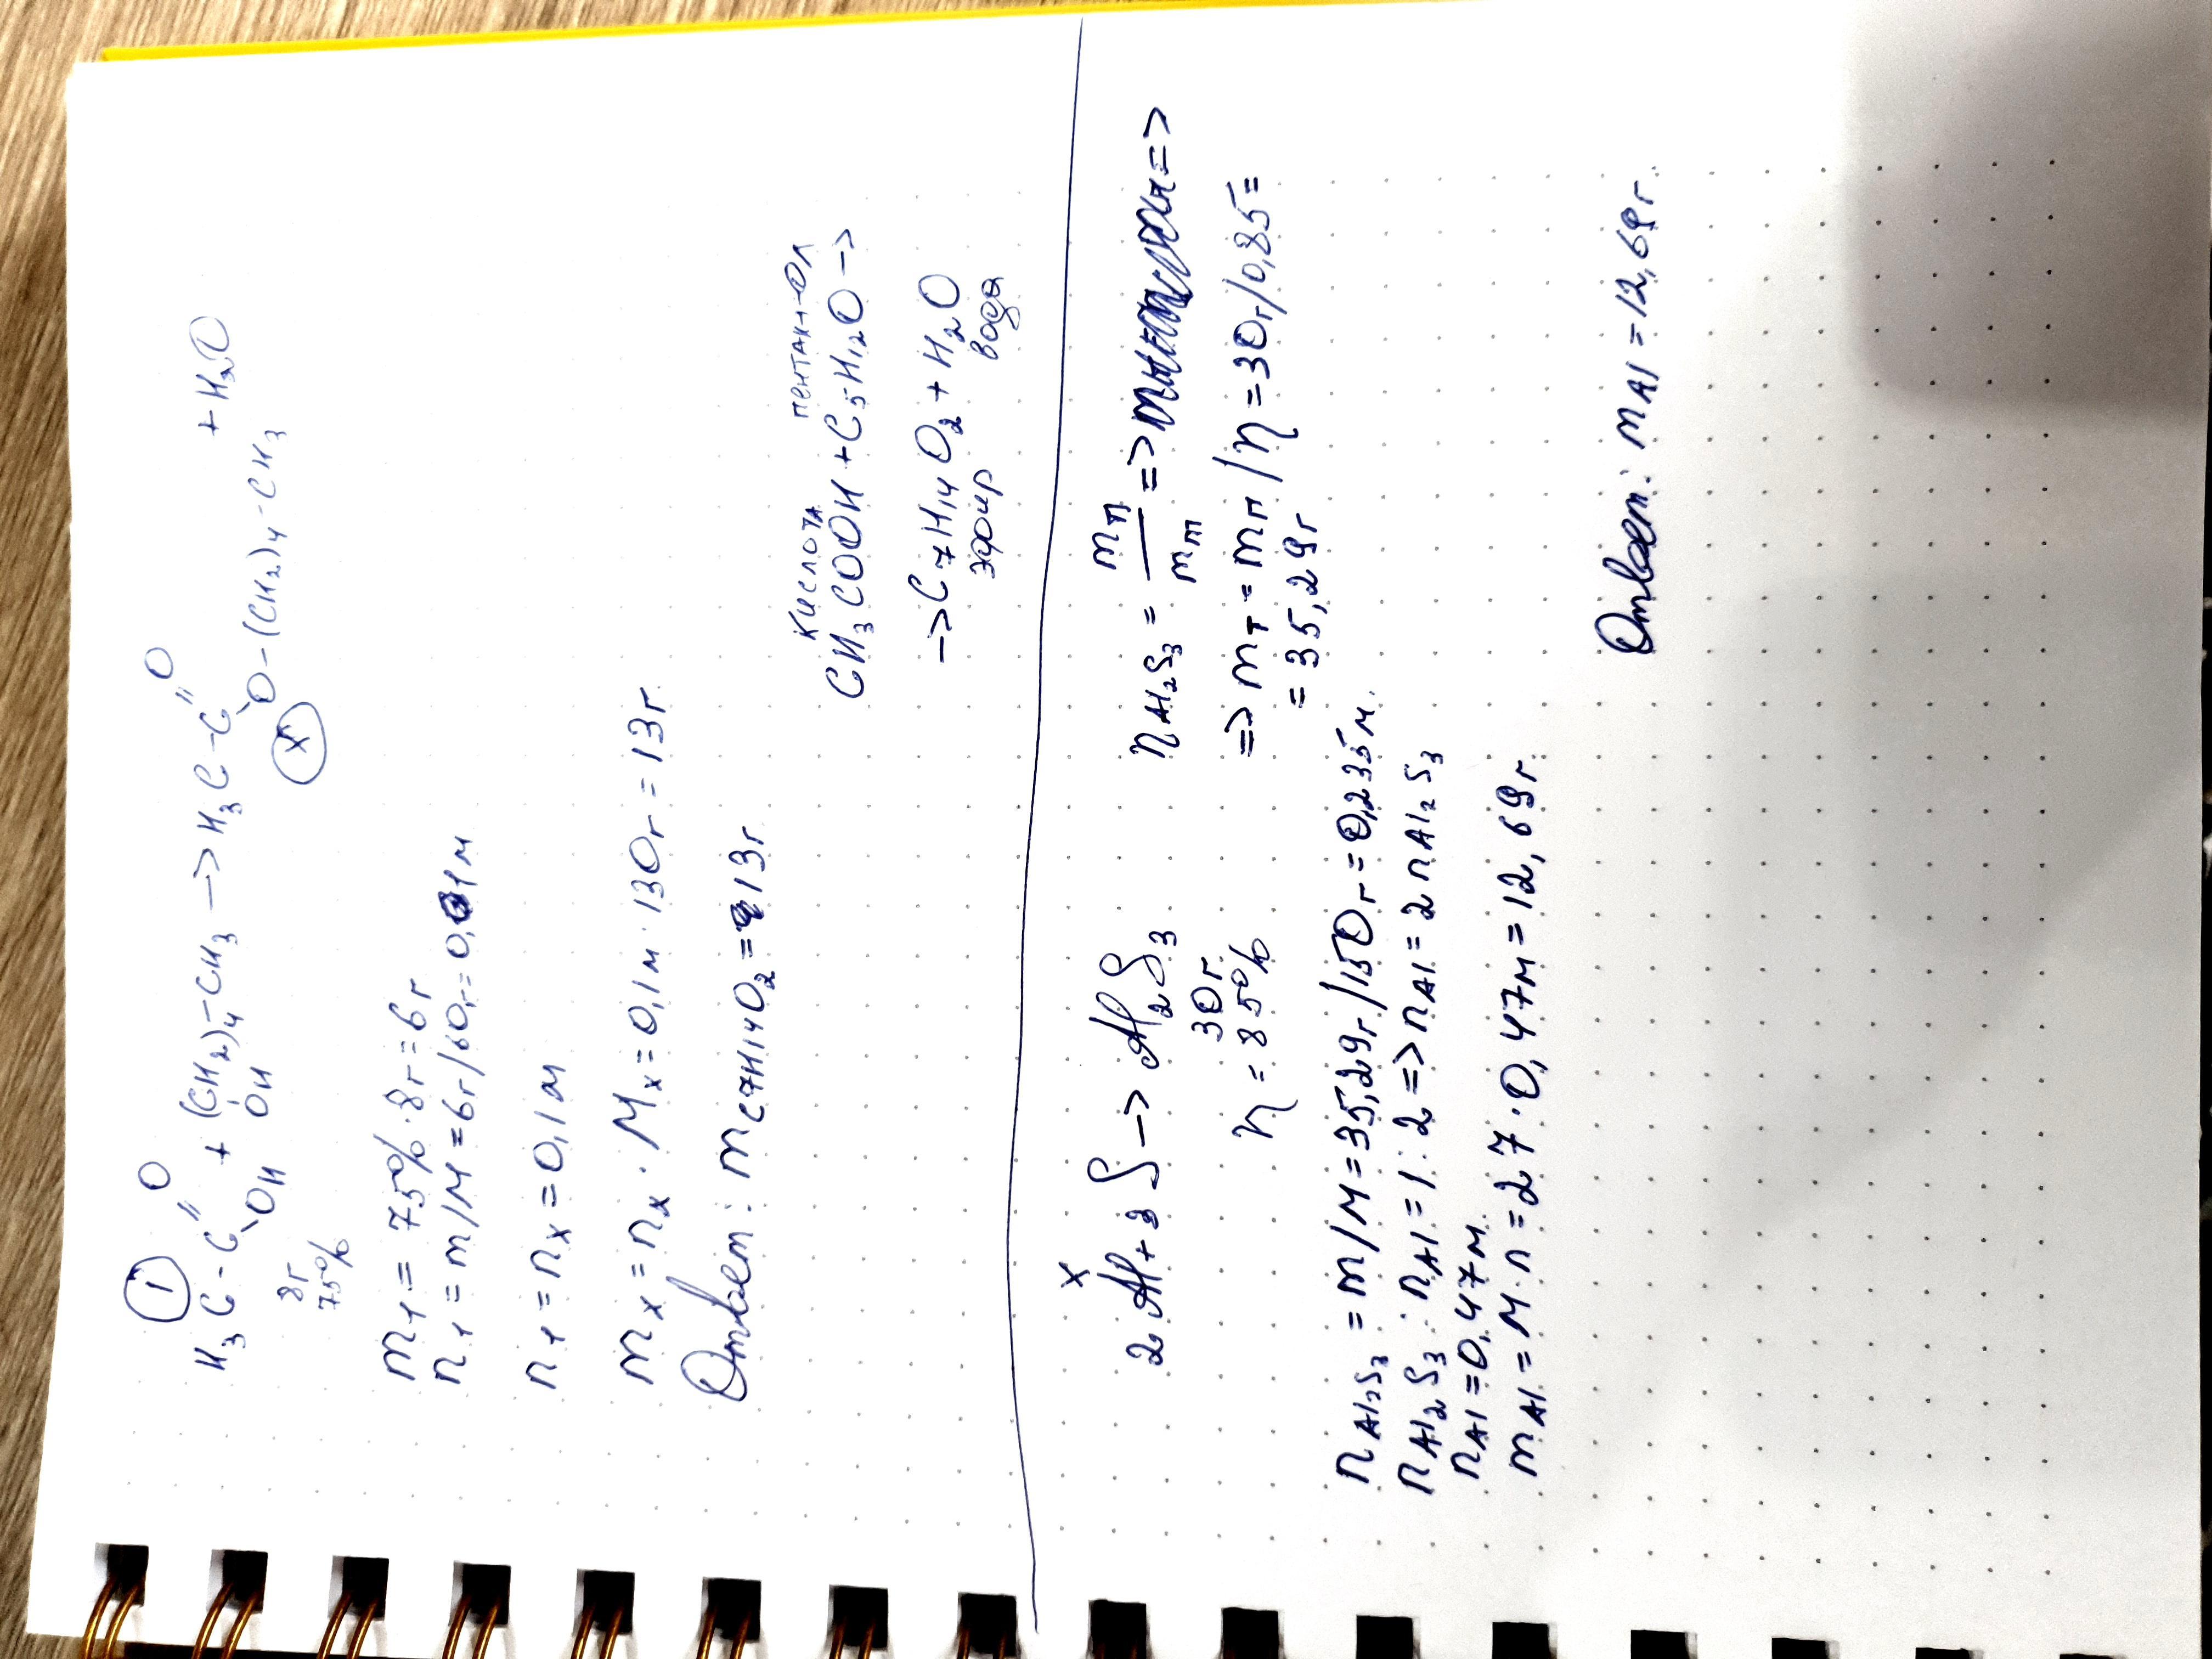 ①
H₃C-C(=O)OH + (CH₂)₄-CH₃ → H₃C-C(=O)O-(CH₂)₄-CH₃ + H₂O
OH
8г
75%
Ⓧ
m₁ = 75% · 8г = 6г
n₁ = m/M = 6г/60г = 0,1м
n₁ = nₓ = 0,1м
mₓ = nₓ · Mₓ = 0,1м · 130г = 13г
Ответ: m C₇H₁₄O₂ = 13г
кислота пентан-ол
CH₃COOH + C₅H₁₂O →
→ C₇H₁₄O₂ + H₂O
эфир вода
x
2Al + 3S → Al₂S₃
30г
η = 85%
η Al₂S₃ = mп/mт => =>
=> mт = mп/η = 30г/0,85 =
= 35,29г
n Al₂S₃ = m/M = 35,29г/150г = 0,235м.
n Al₂S₃ : n Al = 1:2 => n Al = 2 n Al₂S₃
n Al = 0,47м
m Al = M·n = 27·0,47м = 12,69г
Ответ: m Al = 12,69г.